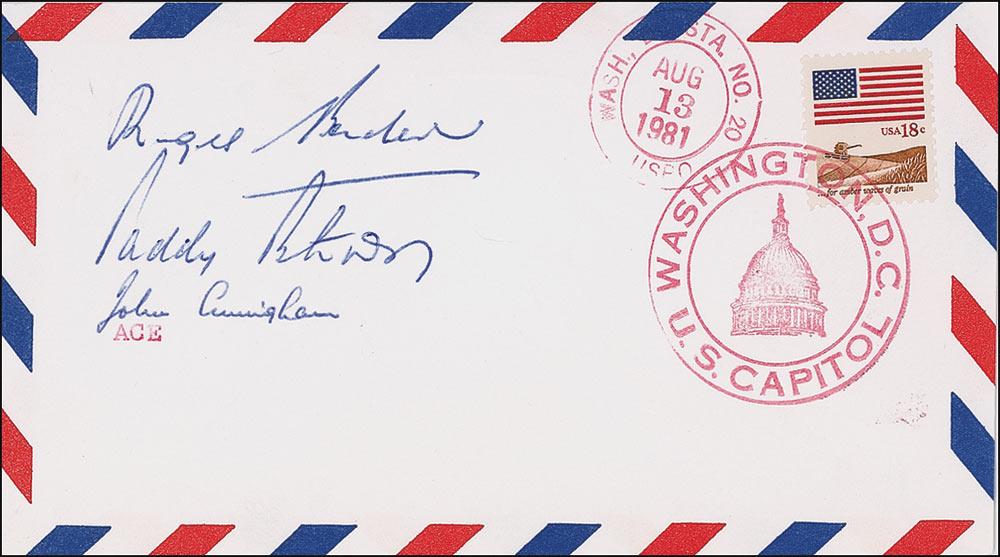 Paddy
John Cunningham
ACE
WASH., STA. NO. 20
AUG
13
1981
USPO
USA 18c
...for amber waves of grain
WASHINGTON, D.C.
U.S. CAPITOL